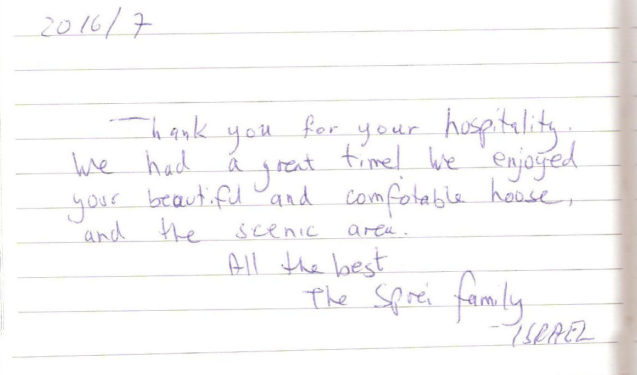 2016/7
Thank you for your hospitality.
We had a great time! We enjoyed
your beautiful and comfotable hoose,
and the scenic area.
All the best
The Sprei family
ISRAEL